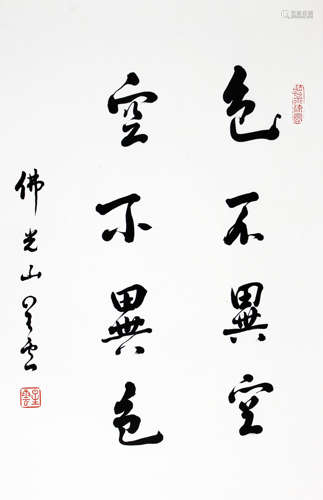 色不異空
空不異色
佛光山星雲
星雲